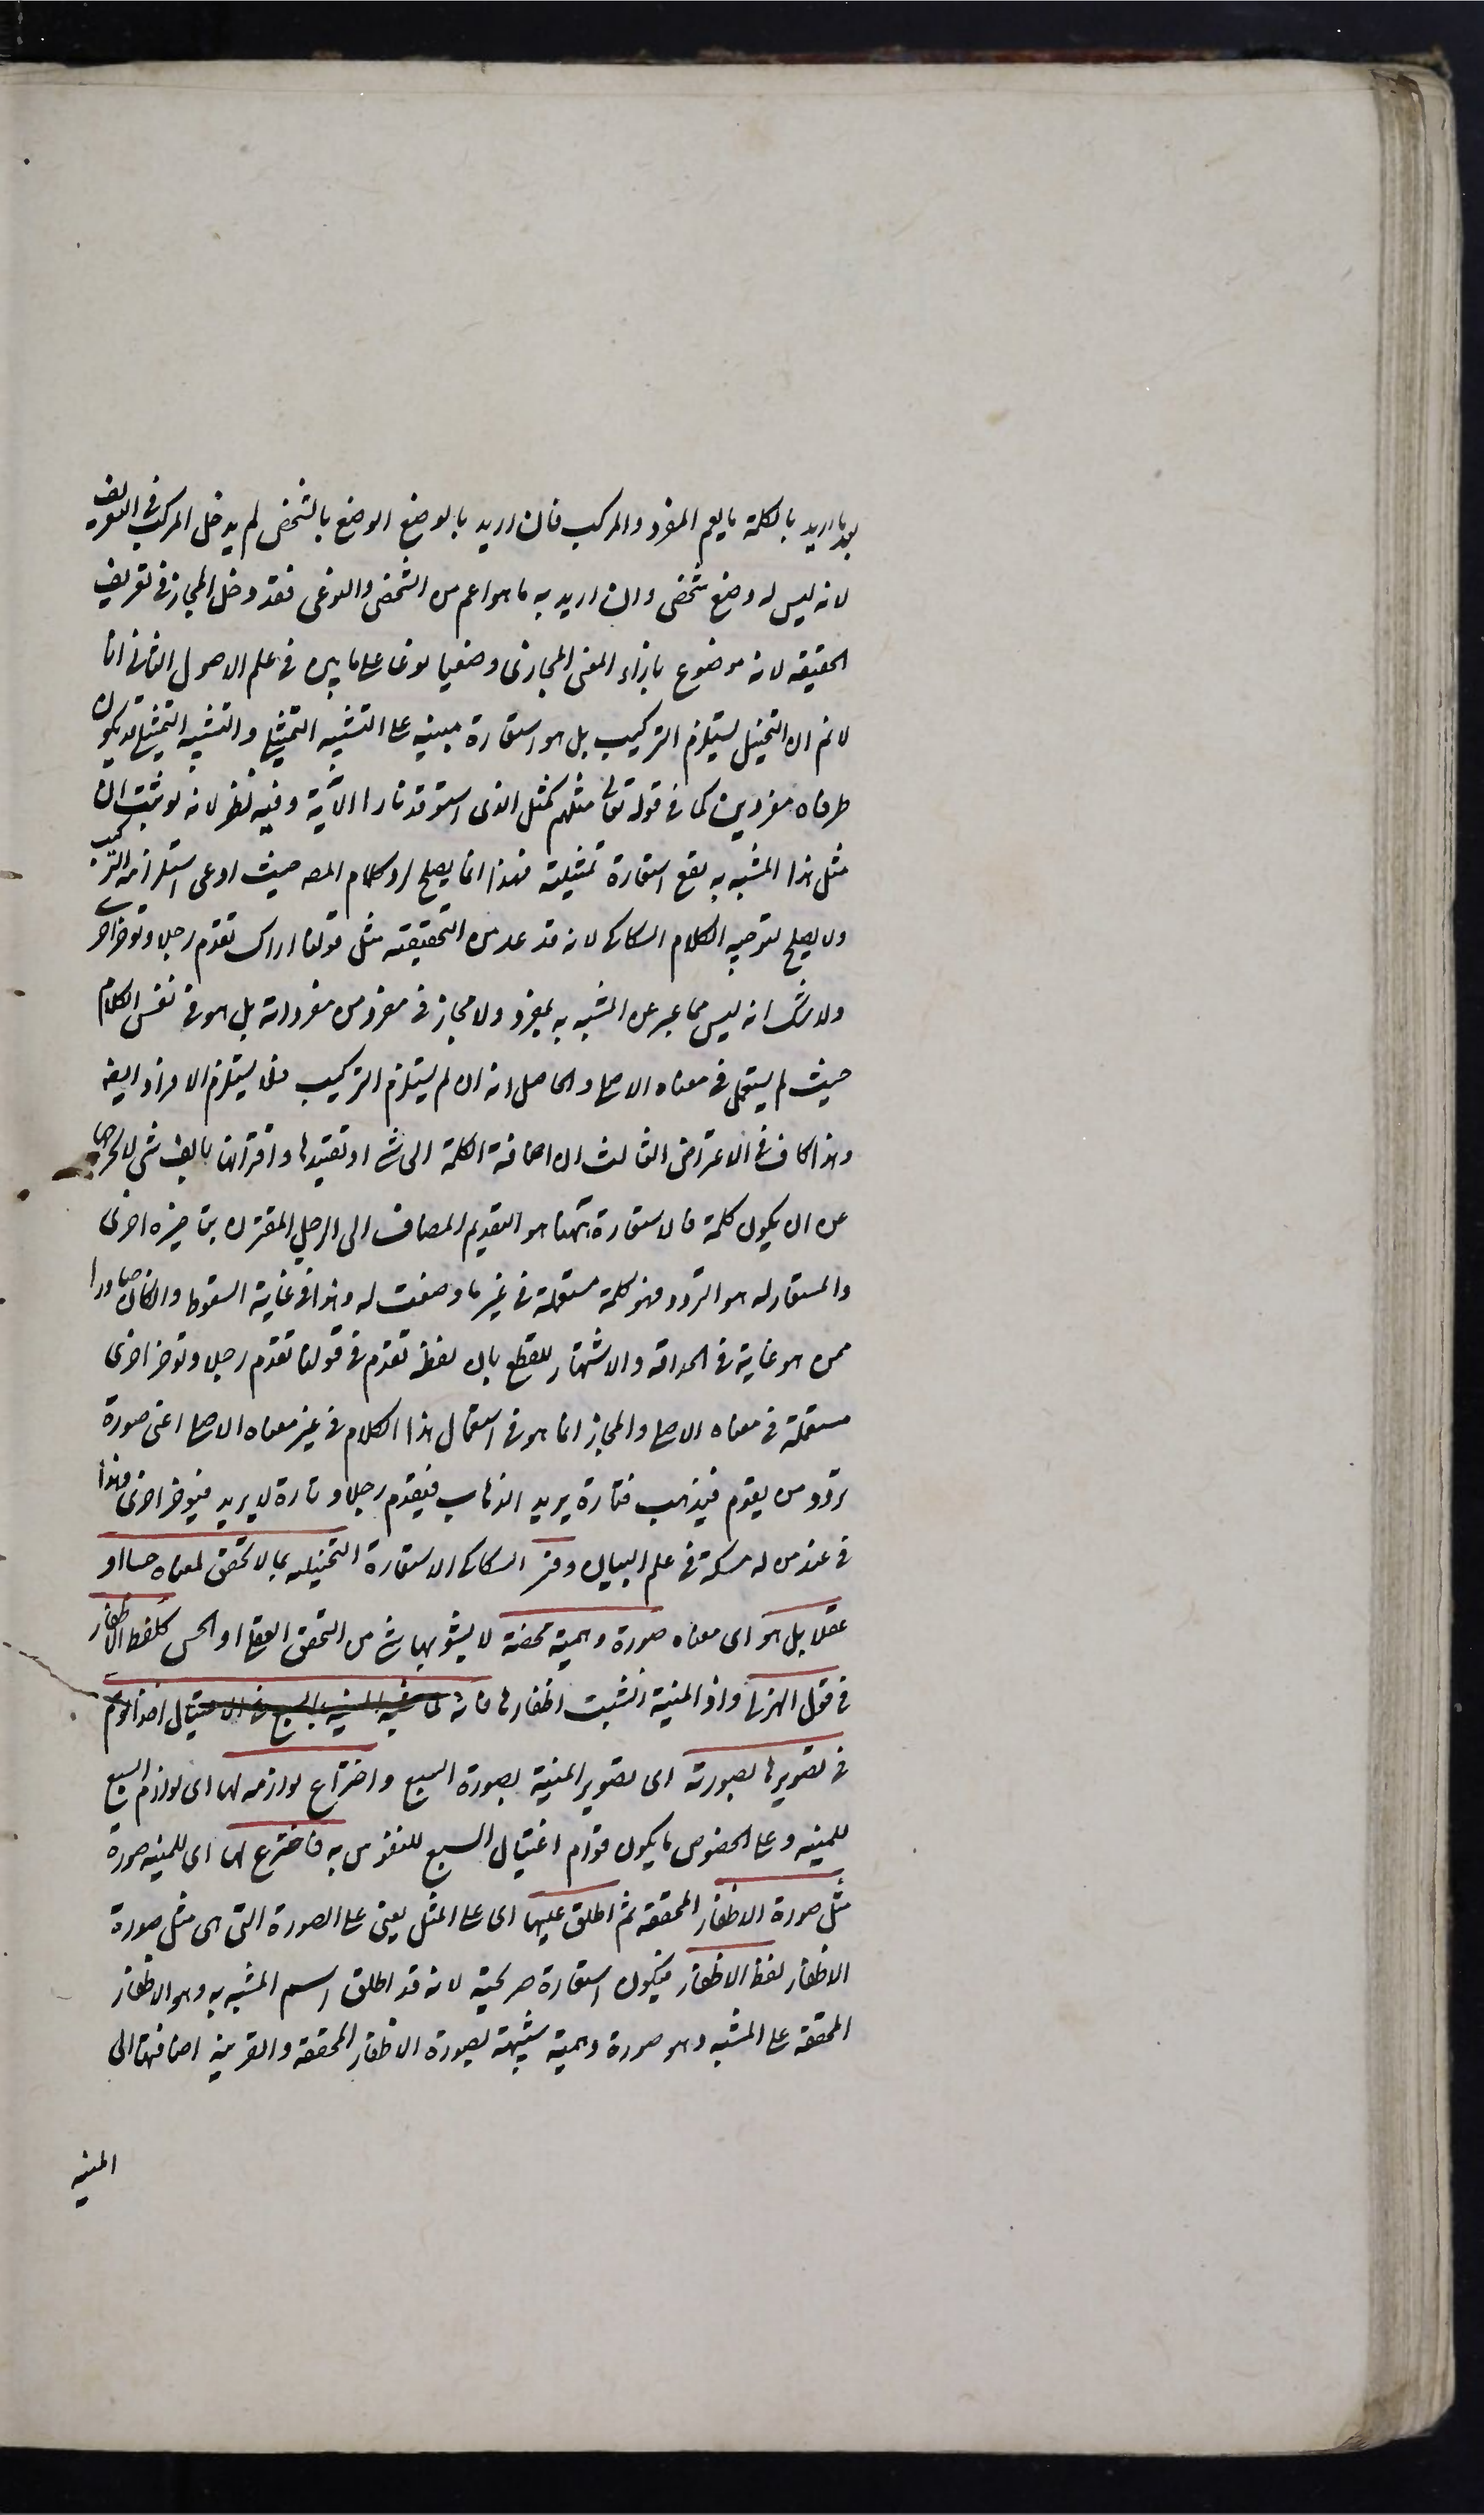 بعد ما اريد بالكلمة ما يعم المفرد والمركب فان اريد بالوضع الوضع بالشخص لم يدخل المركب في التعريف
لانه ليس له وضع شخصى وان اريد به ما هو اعم من الشخصى والنوعى فقد دخل المجاز في تعريف
الحقيقة لانه موضوع بازاء المعنى المجازى وضعيا نوعيا على ما بين في علم الاصول الثانى انا
لا نم ان التمثيل يستلزم التركيب بل هو استعارة مبنية على التشبيه التمثيلى والتشبيه التمثيلى قد يكون
طرفاه مفردين كما في قوله تعالى مثلهم كمثل الذى استوقد نارا الآية وفيه نظر لانه لو ثبت ان
مثل هذا المشبه به يقع استعارة تمثيلية فهذا انما يصلح لرد كلام المصـ حيث ادعى استلزامه التركيب
ولا يصلح لتوجيه الكلام السكاكى لانه قد عد من التحقيقية مثل قولنا اراك تقدم رجلا وتؤخر اخرى
ولا شك انه ليس مما عبر عن المشبه به بمفرد ولا مجاز في مفرد من مفرداته بل هو في نفس الكلام
حيث لم يستعمل في معناه الاصلى والحاصل انه ان لم يستلزم التركيب فلا يستلزم الافراد ايضه
وهذا كاف في الاعتراض الثالث ان اضافة الكلمة الى شئ او تقييدها واقترانها بالف شئ لا يخرجها
عن ان يكون كلمة فالاستعارة ههنا هو التقديم المضاف الى الرجل المقترن بتاخير اخرى
والمستعار له هو التردد فهو كلمة مستعملة في غير ما وضعت له وهذا في غاية السقوط وان كان صادرا
ممن هو غاية في الحداقه والاشتهار للقطع بان لفظ تقدم في قولنا تقدم رجلا وتؤخر اخرى
مستعملة في معناه الاصلى والمجاز انما هو في استعمال هذا الكلام في غير معناه الاصلى اعنى صورة
تردد من يقوم فيذهب فتارة يريد الذهاب فيقدم رجلا وتارة لا يريد فيؤخر اخرى وهذا
في عند من له مسكة في علم البيان وفسر السكاكى الاستعارة التخييلية بما لا تحقق لمعناه حسا او
عقلا بل هو اى معناه صورة وهمية محضة لا يشوبها شئ من التحقق العقلى او الحسى كلفظ الاظفار
في قول الهزلى واذ المنية انشبت اظفارها فانه لما شبه المنية بالسبع في الاغتيال اخذ الوهم
في تصويرها بصورته اى تصوير المنية بصورة السبع واختراع لوازمه لها اى لوازم السبع
للمنيه وعلى الخصوص ما يكون قوام اغتيال السبع للنفوس به فاخترع لها اى للمنيه صورة
مثل صورة الاظفار المحققه ثم اطلق عليها اى على المثل يعنى على الصورة التى هى مثل صورة
الاظفار لفظ الاظفار فيكون استعارة صريحية لانه قد اطلق اسم المشبه به وهو الاظفار
المحققه على المشبه وهو صورة وهمية شبيهة بصورة الاظفار المحققه والقرينه اضافتها الى
المنيه